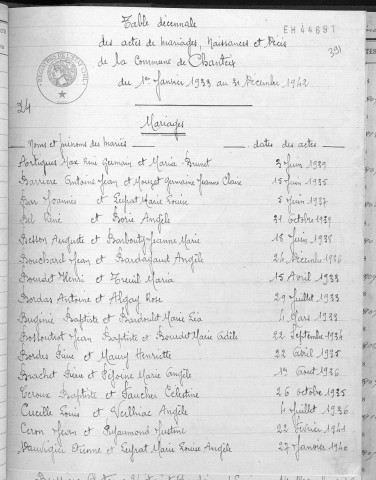 Table décennale
EH44691
des actes de mariages, Naissances et Décès
391
de la Commune de Chanteix
du 1er Janvier 1933 au 31 Décembre 1942
24
Mariages
Noms et prénoms des mariés dates des actes
Max René Germain et Maria Brunet 3 Juin 1939
Barrière Antoine Jean et Germaine Jeanne Claire 15 Juin 1935
Bar Joannès et Leyrat Marie Louise 5 Juin 1937
Bel René et Borie Angèle 31 octobre 1939
Besson Auguste et Jeanne Marie 15 Juin 1935
Bouchard Jean et Angèle 26 Décembre 1936
Boudet Henri et Treuil Maria 15 Avril 1933
Bordas Antoine et Algay Rose 29 Juillet 1933
Bugénie Baptiste et Marie Léa 4 Mars 1933
Jean Baptiste et Boudet Marie Adèle 22 Septembre 1934
Bordes Pierre et Maury Henriette 22 Avril 1935
Brachet Pierre et Marie Angèle 1er Août 1936
Baptiste et Faucher Célestine 26 octobre 1935
Cueille Louis et Veilhiac Angèle 4 Juillet 1936
Ceron Jean et Puyaumond Justine 22 Février 1941
Etienne et Leyrat Marie Louise Angèle 27 Janvier 1940